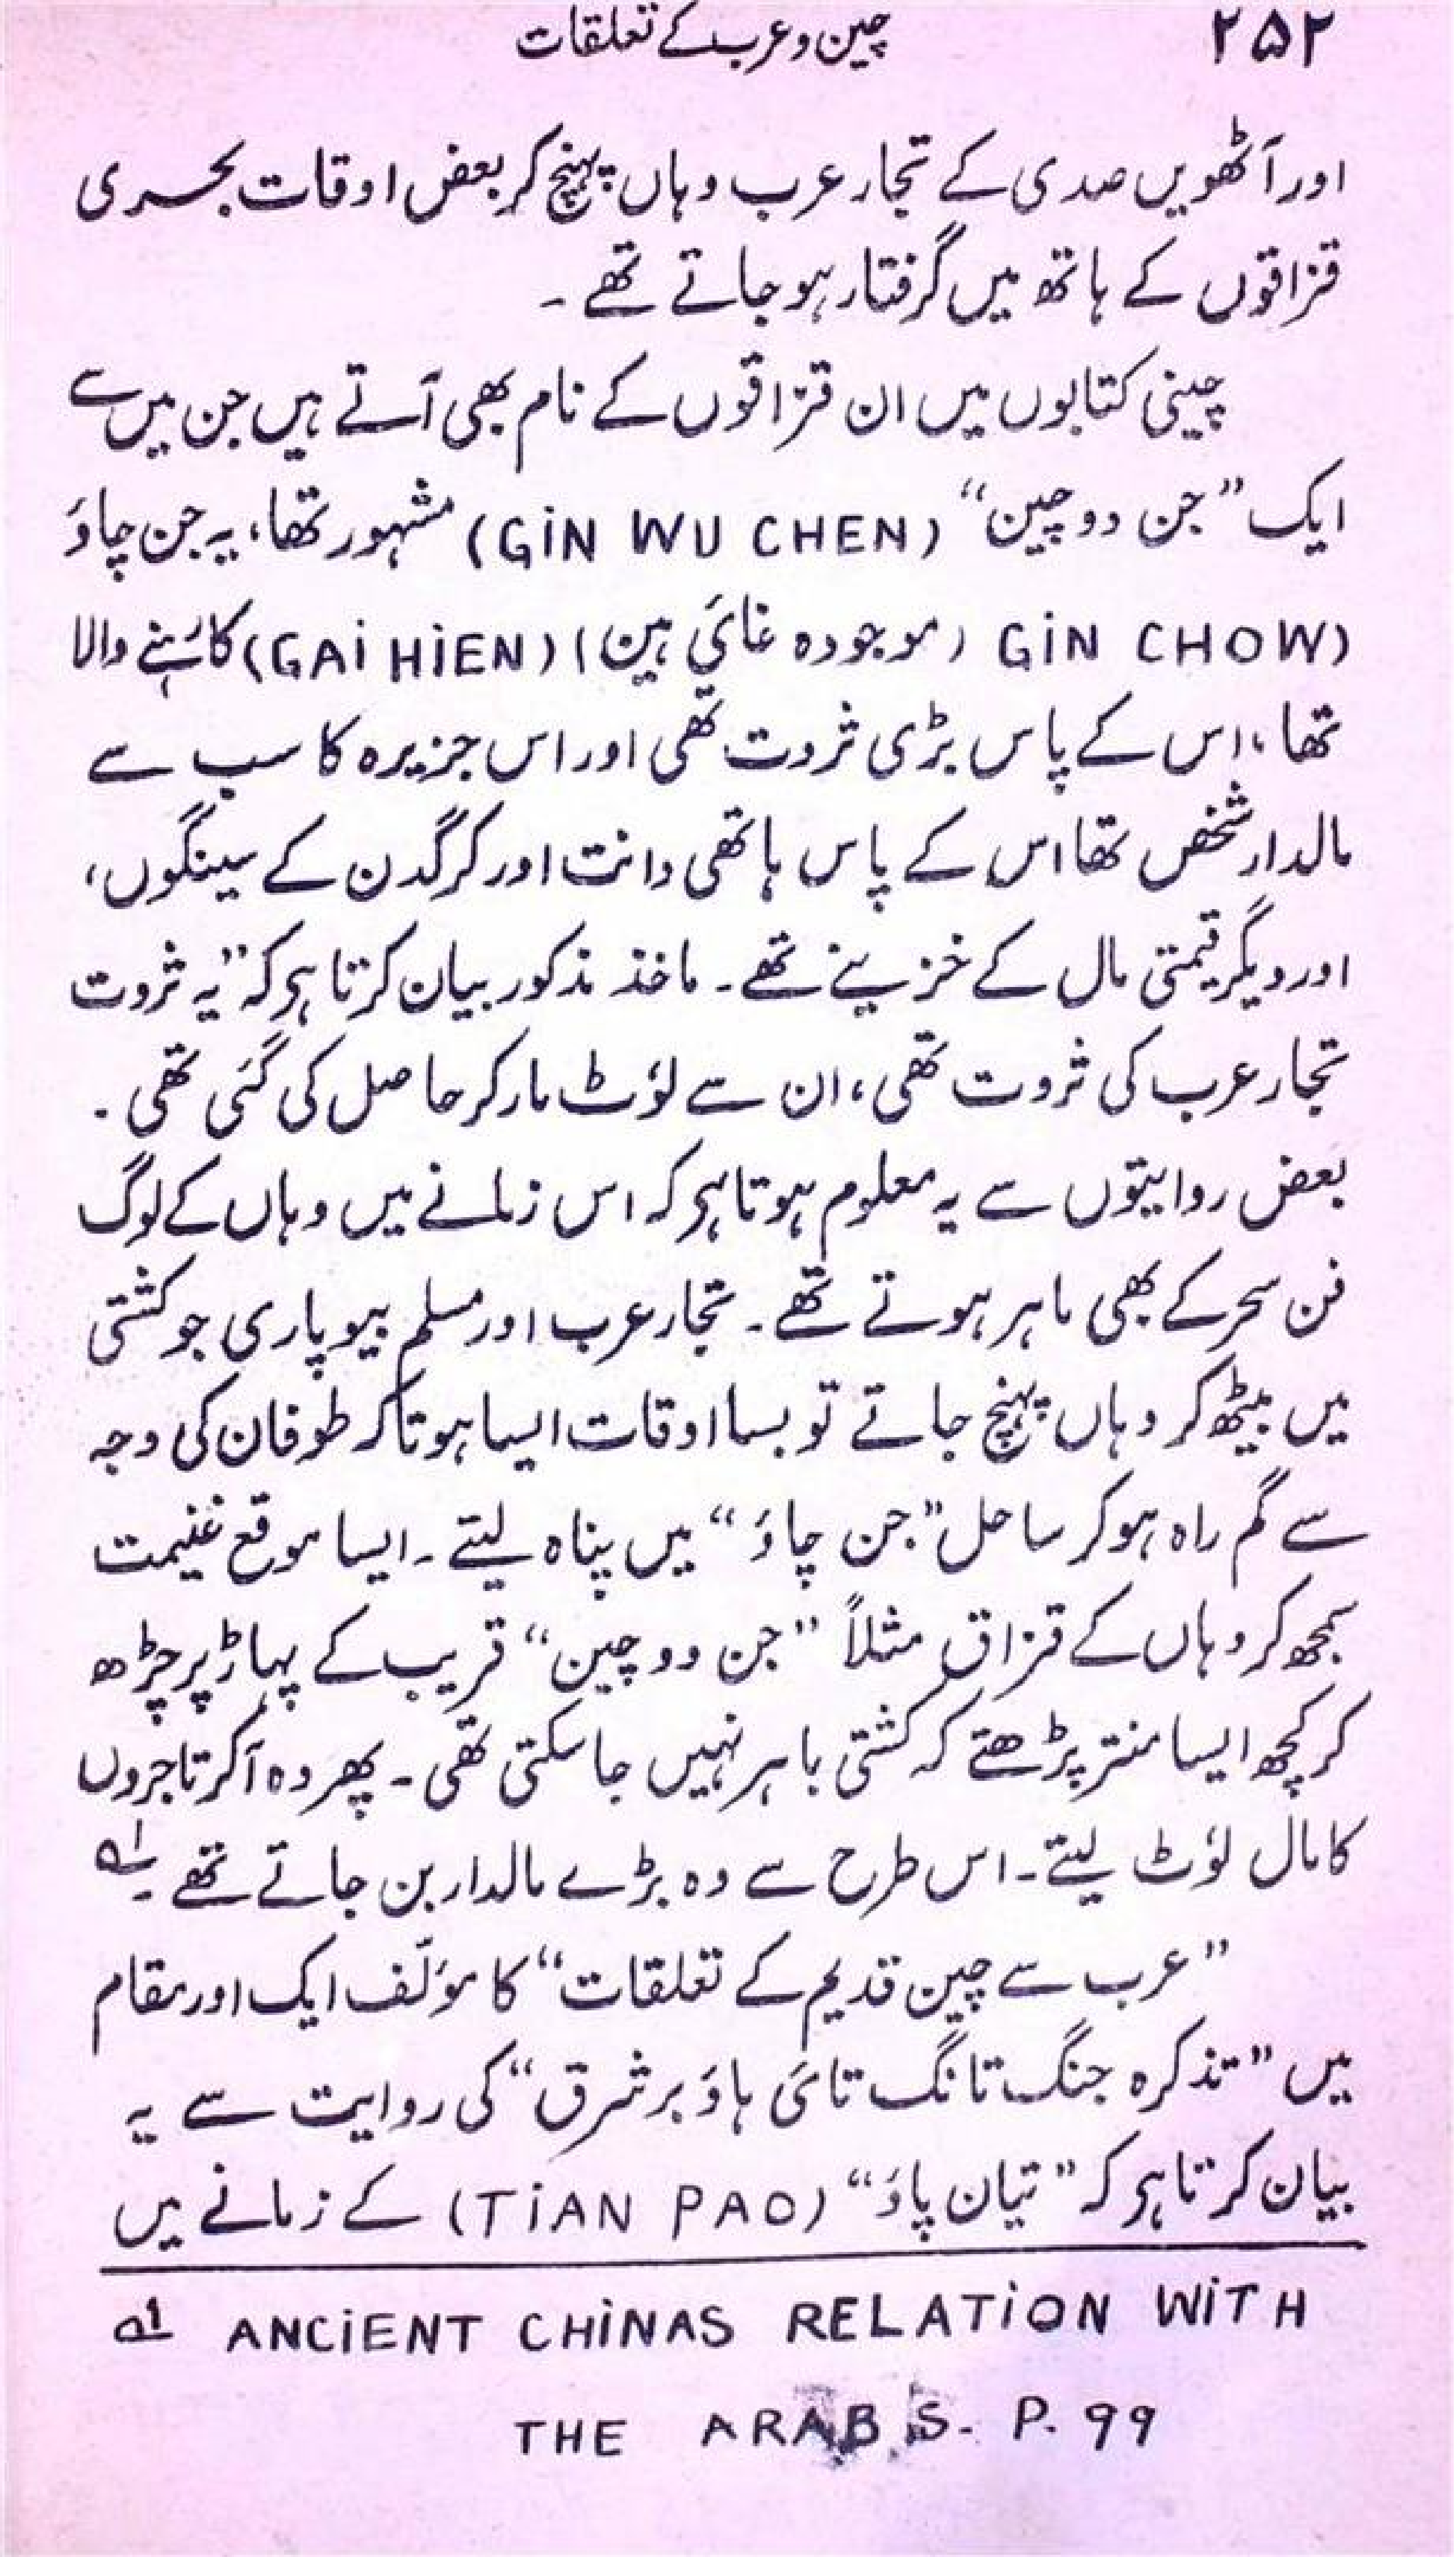 ۲۵۲ چین و عرب کے تعلقات
اور آٹھویں صدی کے تجار عرب وہاں پہنچ کر بعض اوقات بحری
قزاقوں کے ہاتھ میں گرفتار ہو جاتے تھے ۔
چینی کتابوں میں ان قزاقوں کے نام بھی آتے ہیں جن میں سے
ایک ”جن وو چین“ (GiN WU CHEN) مشہور تھا، یہ جن چاؤ
(GiN CHOW (موجودہ غائی ہین) (GAi HiEN) کا رہنے والا
تھا، اس کے پاس بڑی ثروت تھی اور اس جزیرہ کا سب سے
مالدار شخص تھا اس کے پاس ہاتھی دانت اور کرگدن کے سینگوں،
اور دیگر قیمتی مال کے خزینے تھے۔ ماخذ مذکور بیان کرتا ہر کہ ”یہ ثروت
تجار عرب کی ثروت تھی، ان سے لوٗٹ مار کر حاصل کی گئی تھی ۔
بعض روایتوں سے یہ معلوم ہوتا ہر کہ اس زمانے میں وہاں کے لوگ
فن سحر کے بھی ماہر ہوتے تھے۔ تجار عرب اور مسلم بیوپاری جو کشتی
میں بیٹھ کر وہاں پہنچ جاتے تو بسا اوقات ایسا ہوتا کہ طوفان کی وجہ
سے گم راہ ہو کر ساحل ”جن چاؤ“ میں پناہ لیتے۔ ایسا موقع غنیمت
سمجھ کر وہاں کے قزاق مثلاً ”جن وو چین“ قریب کے پہاڑ پر چڑھ
کر کچھ ایسا منتر پڑھتے کہ کشتی باہر نہیں جا سکتی تھی۔ پھر وہ آکر تاجروں
کا مال لوٗٹ لیتے۔ اس طرح سے وہ بڑے مالدار بن جاتے تھے ۔؂۱
”عرب سے چین قدیم کے تعلقات“ کا مؤلّف ایک اور مقام
میں ”تذکرہ جنگ تانگ تائی ہاؤ بر شرق“ کی روایت سے یہ
بیان کرتا ہر کہ ”تیان پاؤ“ (TiAN PAO) کے زمانے میں
؂۱ ANCiENT CHiNAS RELATiON WiTH
THE ARABS. P. 99